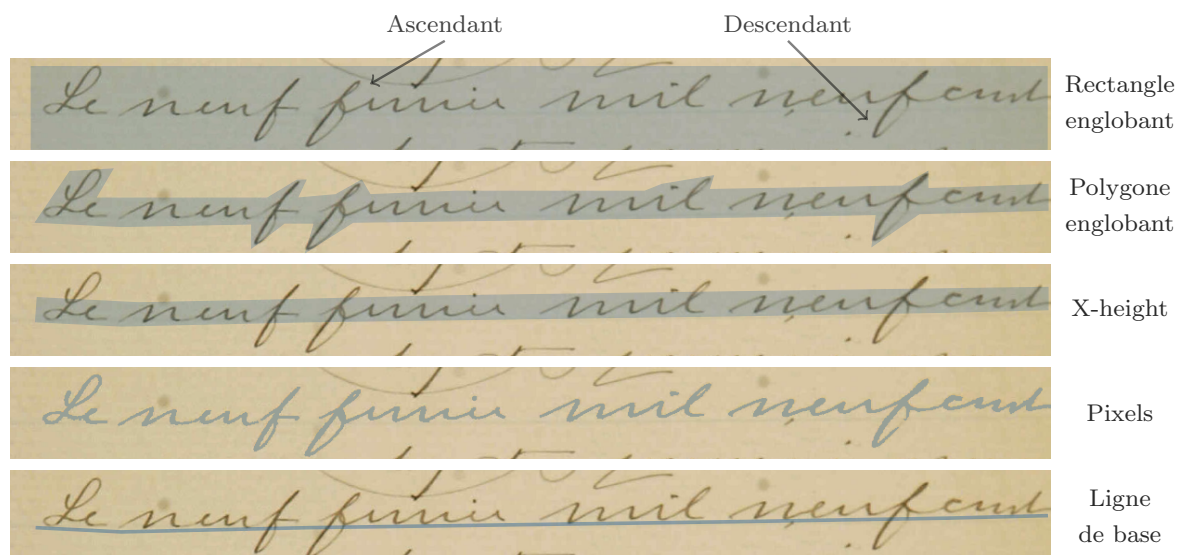 Ascendant Descendant
Le neuf fevrier mil neuf cent
Rectangle
englobant
Le neuf fevrier mil neuf cent
Polygone
englobant
Le neuf fevrier mil neuf cent
X-height
Le neuf fevrier mil neuf cent
Pixels
Le neuf fevrier mil neuf cent
Ligne
de base